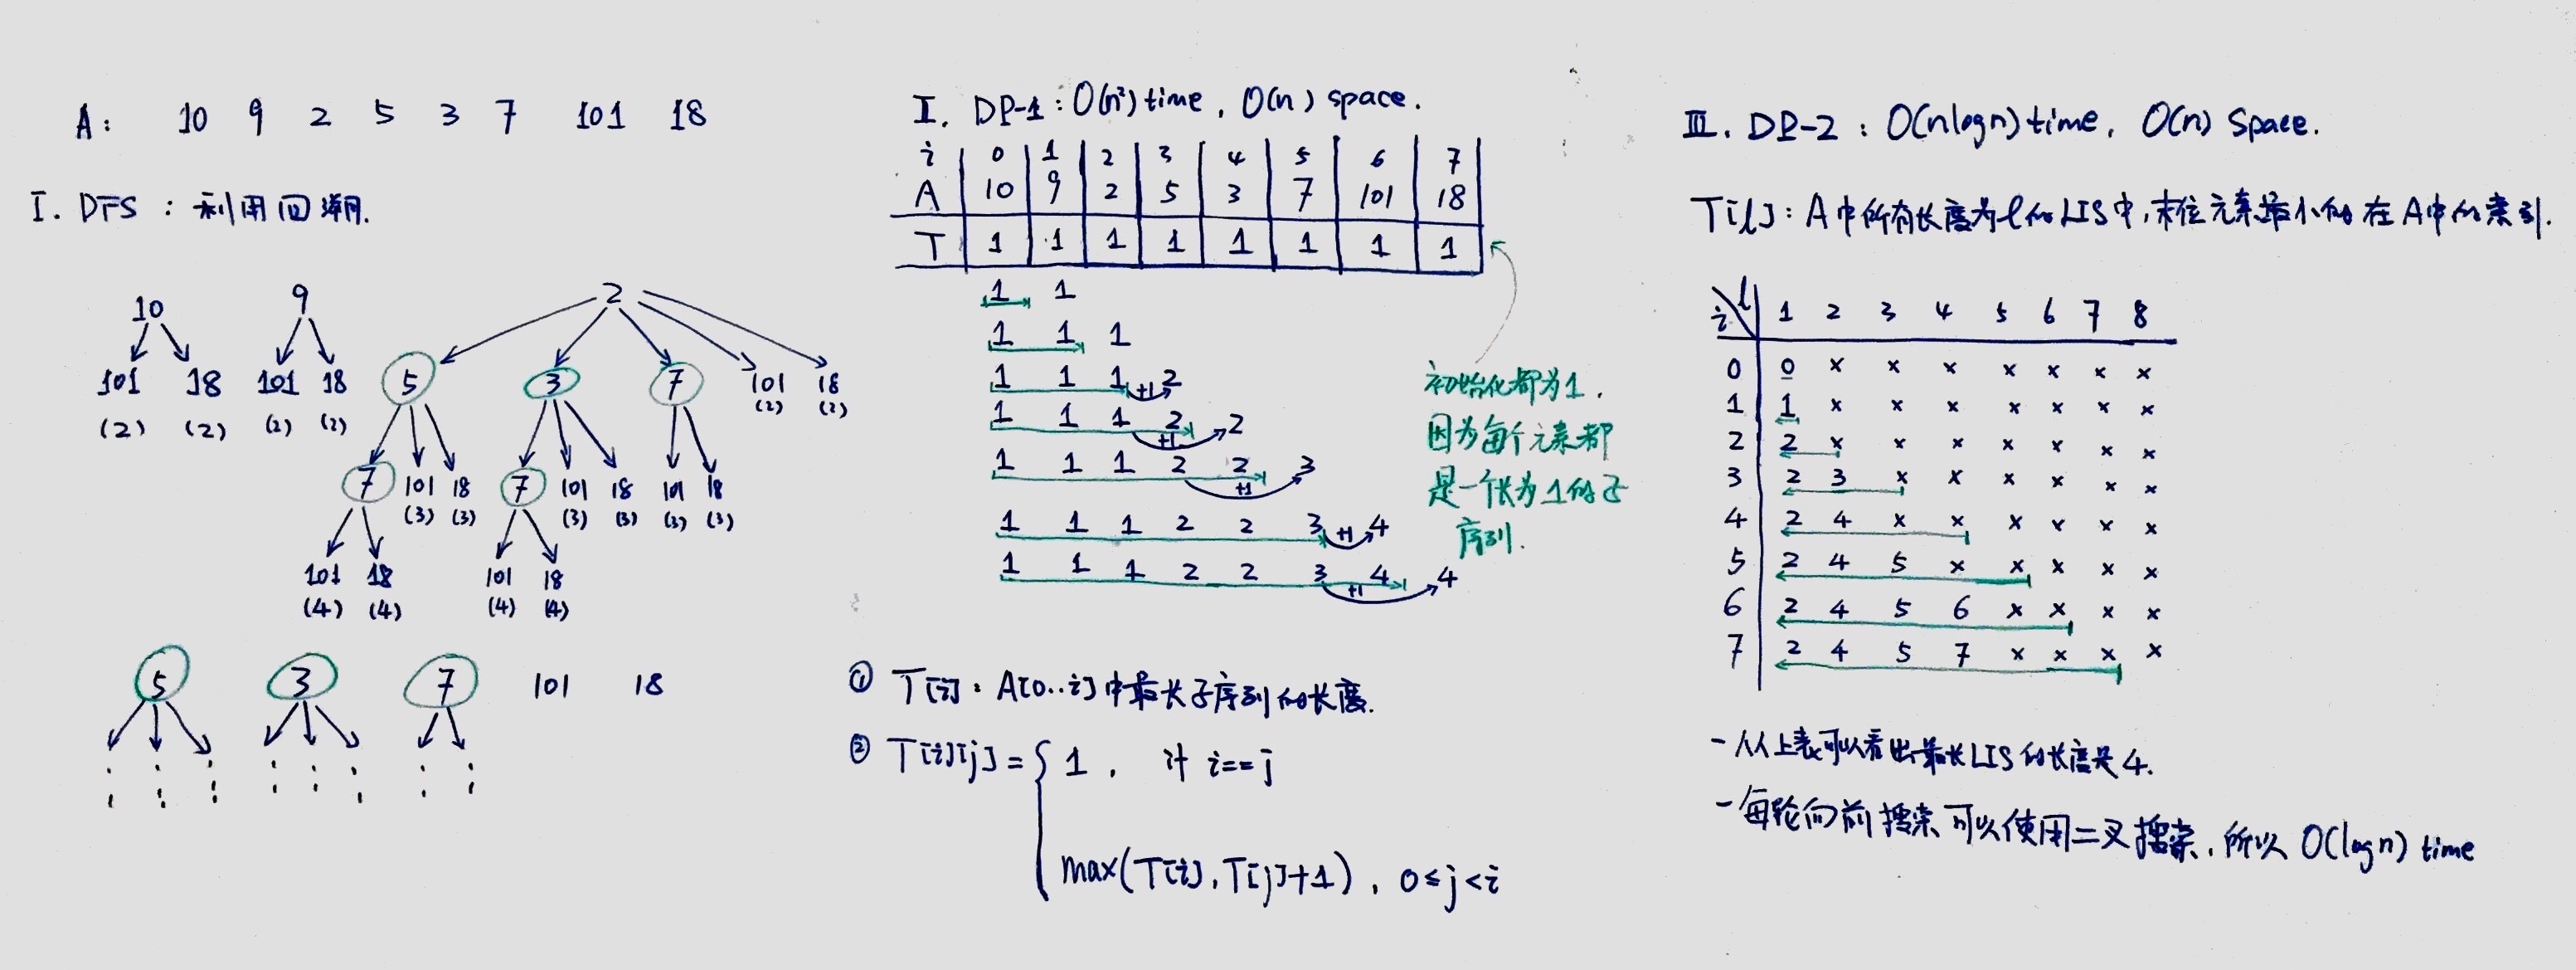 A: 10 9 2 5 3 7 101 18
I. DFS : 利用回溯.
10 9 2
101 18 101 18 5 3 7 101 18
(2) (2) (2) (2) (2) (2)
7 101 18 7 101 18 101 18
(3) (3) (3) (3) (3) (3)
101 18 101 18
(4) (4) (4) (4)
5 3 7 101 18
II. DP-1 : O(n²) time, O(n) space.
i 0 1 2 3 4 5 6 7
A 10 9 2 5 3 7 101 18
T 1 1 1 1 1 1 1 1
1 1
1 1 1
1 1 1 +1 2
1 1 1 2 +1 2
1 1 1 2 2 +1 3
1 1 1 2 2 3 +1 4
1 1 1 2 2 3 4 +1 4
初始化都为1.
因为每个元素都
是一个长为1的子
序列.
① T[i] : A[0..i]中最长子序列的长度.
② T[i][j] = { 1, if i==j
max(T[i], T[j]+1), 0≤j<i
III. DP-2 : O(nlogn) time, O(n) Space.
T[l] : A中所有长度为l的LIS中,末位元素最小的在A中的索引.
i l 1 2 3 4 5 6 7 8
0 0 x x x x x x x
1 1 x x x x x x x
2 2 x x x x x x x
3 2 3 x x x x x x
4 2 4 x x x x x x
5 2 4 5 x x x x x
6 2 4 5 6 x x x x
7 2 4 5 7 x x x x
- 从上表可以看出最长LIS的长度是4.
- 每轮向前搜索可以使用二叉搜索,所以 O(logn) time